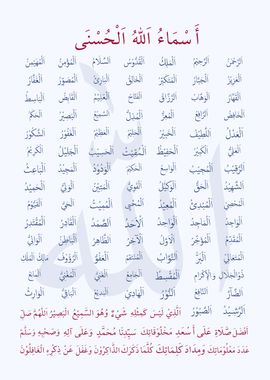 أَسْمَاءُ اللهُ الْحُسْنَى
الرَّحْمَنُ الرَّحِيْمُ الْمَلِكُ الْقُدُّوْسُ السَّلَامُ الْمُؤْمِنُ الْمُهَيْمِنُ
الْعَزِيْزُ الْجَبَّارُ الْمُتَكَبِّرُ الْخَالِقُ الْبَارِئُ الْمُصَوِّرُ الْغَفَّارُ
الْقَهَّارُ الْوَهَّابُ الرَّزَّاقُ الْفَتَّاحُ الْعَلِيْمُ الْقَابِضُ الْبَاسِطُ
الْخَافِضُ الرَّافِعُ الْمُعِزُّ الْمُذِلُّ السَّمِيْعُ الْبَصِيْرُ الْحَكَمُ
الْعَدْلُ اللَّطِيْفُ الْخَبِيْرُ الْحَلِيْمُ الْعَظِيْمُ الْغَفُوْرُ الشَّكُوْرُ
الْعَلِيُّ الْكَبِيْرُ الْحَفِيْظُ الْمُقِيْتُ الْحَسِيْبُ الْجَلِيْلُ الْكَرِيْمُ
الرَّقِيْبُ الْمُجِيْبُ الْوَاسِعُ الْحَكِيْمُ الْوَدُوْدُ الْمَجِيْدُ الْبَاعِثُ
الشَّهِيْدُ الْحَقُّ الْوَكِيْلُ الْقَوِيُّ الْمَتِيْنُ الْوَلِيُّ الْحَمِيْدُ
الْمُحْصِي الْمُبْدِئُ الْمُعِيْدُ الْمُحْيِي الْمُمِيْتُ الْحَيُّ الْقَيُّوْمُ
الْوَاجِدُ الْمَاجِدُ الْوَاحِدُ الْاَحَدُ الصَّمَدُ الْقَادِرُ الْمُقْتَدِرُ
الْمُقَدِّمُ الْمُؤَخِّرُ الْاَوَّلُ الْآخِرُ الظَّاهِرُ الْبَاطِنُ الْوَالِيُّ
الْمُتَعَالِي الْبَرُّ التَّوَّابُ الْمُنْتَقِمُ الْعَفُوُّ الرَّؤُوْفُ مَالِكُ الْمُلْكِ
ذُوالْجَلَالِ وَالْاِكْرَامِ الْمُقْسِطُ الْجَامِعُ الْغَنِيُّ الْمُغْنِيُّ الْمَانِعُ
الضَّآرُّ النَّافِعُ النُّوْرُ الْهَادِي الْبَدِيْعُ الْبَاقِي الْوَارِثُ
الرَّشِيْدُ الصَّبُوْرُ اَلَّذِيْ لَيْسَ كَمِثْلِهِ شَيْءٌ وَهُوَ السَّمِيْعُ الْبَصِيْرُ اَللَّهُمَّ صَلِّ
اَفْضَلَ صَلَاةٍ عَلَى أَسْعَدِ مَخْلُوْقَاتِكَ سَيِّدِنَا مُحَمَّدٍ وَعَلَى آلِهِ وَصَحْبِهِ وَسَلِّمْ
عَدَدَ مَعْلُوْمَاتِكَ وَمِدَادَ كَلِمَاتِكَ كُلَّمَا ذَكَرَكَ الذَّاكِرُوْنَ وَغَفَلَ عَنْ ذِكْرِكَ الْغَافِلُوْنَ